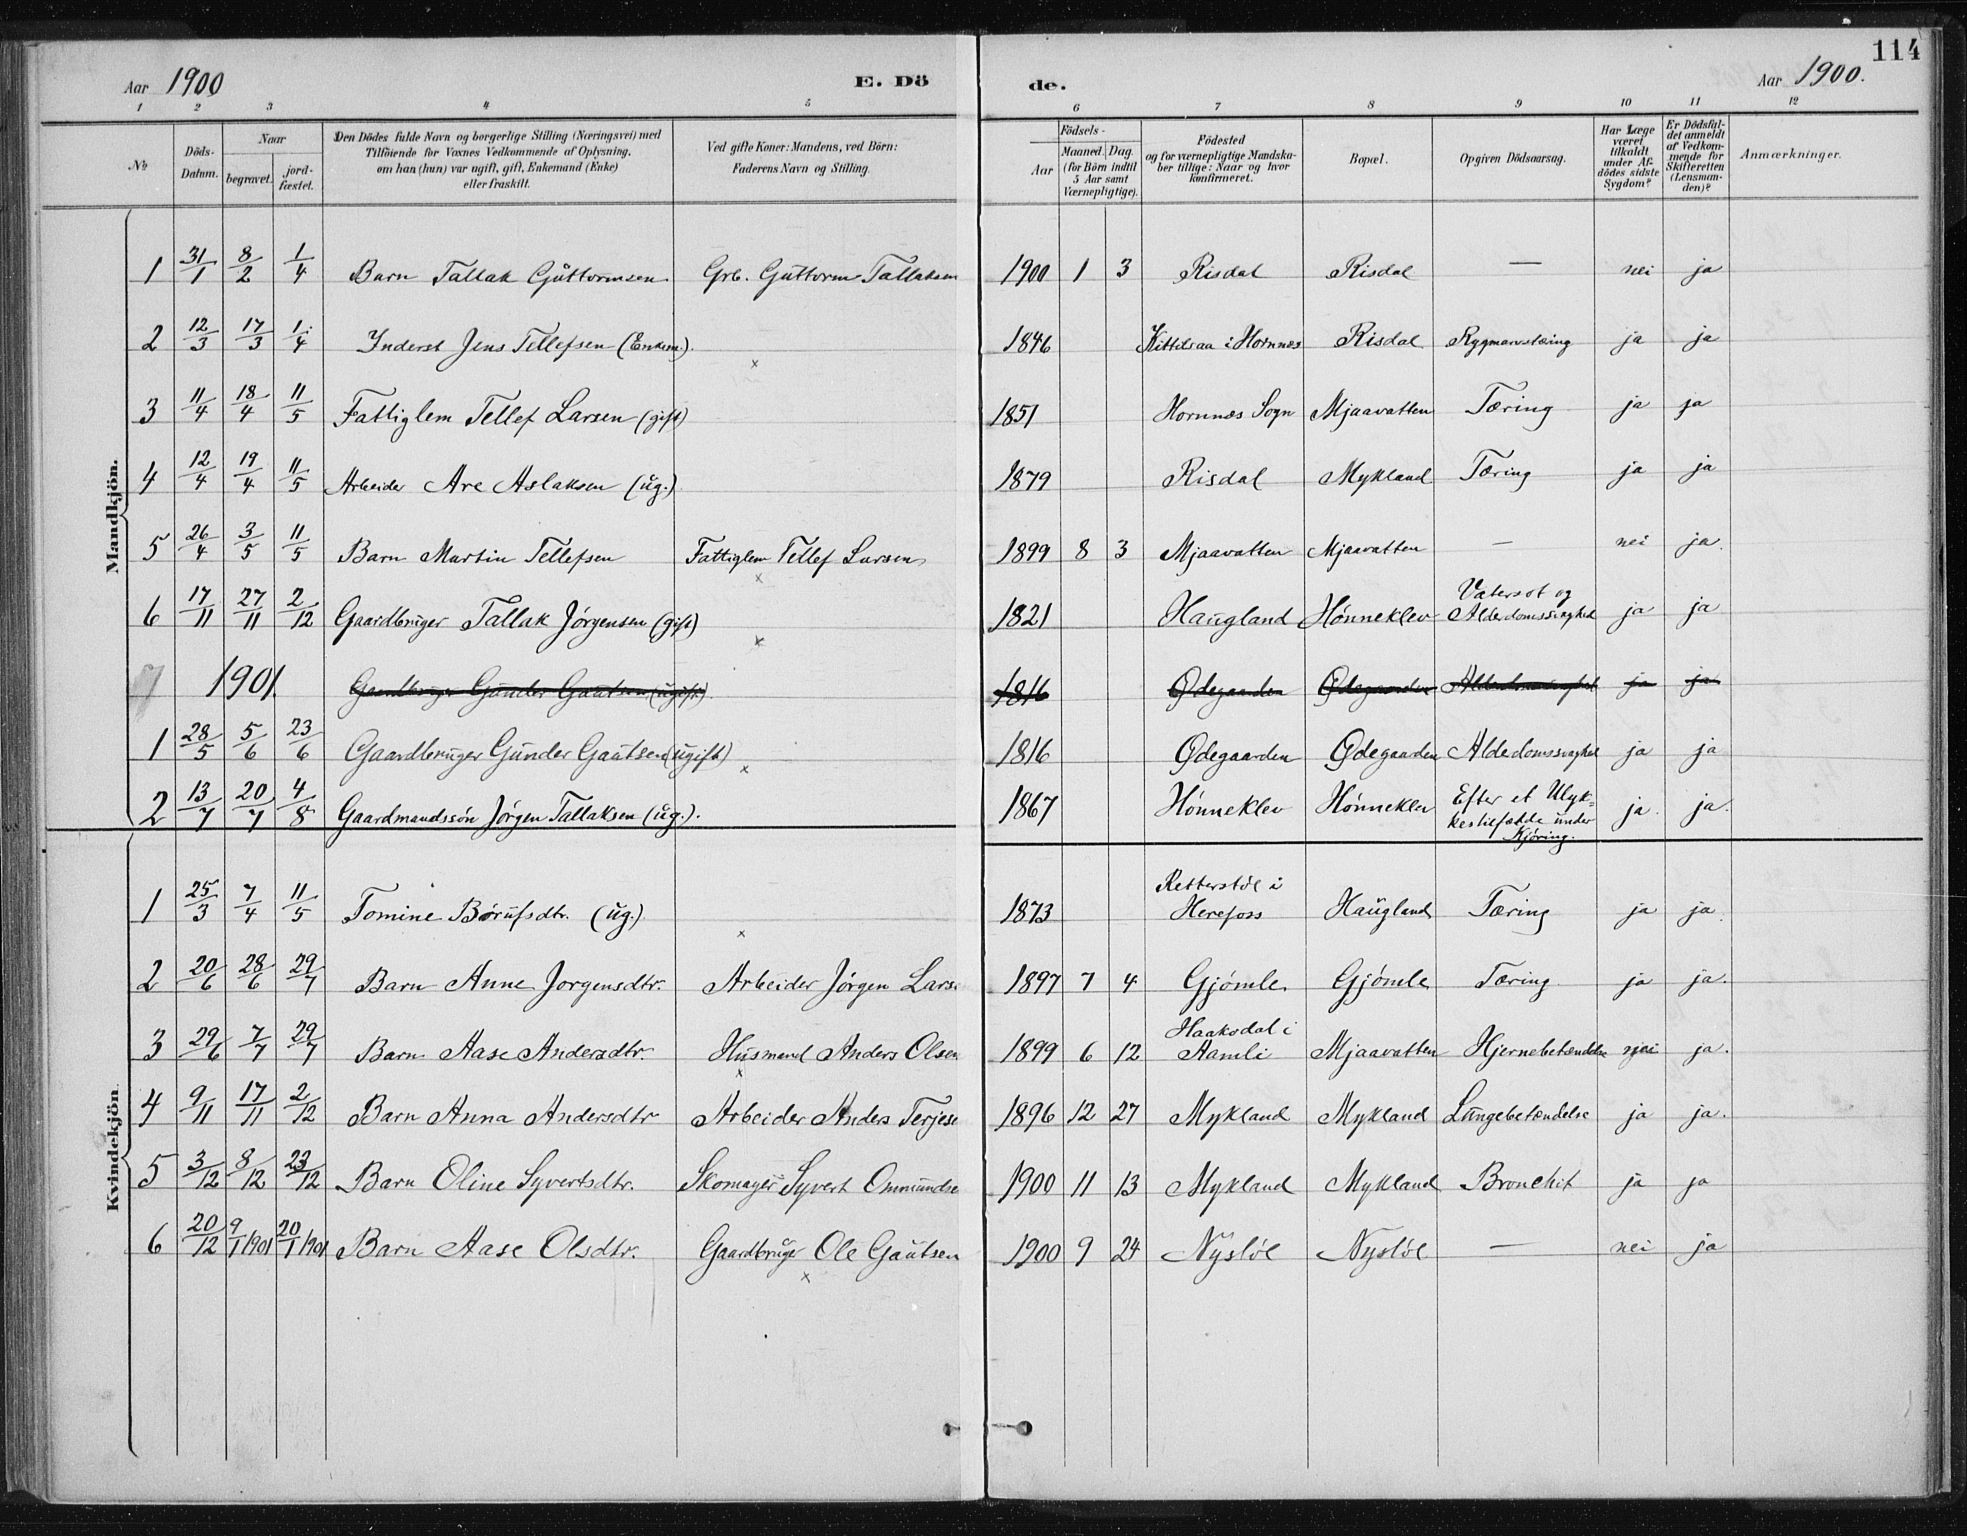 114
Aar 1900
E. Dö
de.
Aar 1900.
1 2 3 4 5 6 7 8 9 10 11 12
№
Döds-Datum.
Naar
begravet.
jord-fæstet.
Den Dödes fulde Navn og borgerlige Stilling (Næringsvei) med
Tilföiende for Voxnes Vedkommende af Oplysning,
om han (hun) var ugift, gift, Enkemand (Enke)
eller fraskilt.
Ved gifte Koner: Mandens, ved Börn:
Faderens Navn og Stilling.
Födsels-
Aar
Maaned. Dag.
(for Börn indtil
5 Aar samt
Værnepligtige).
Födested
og for værnepligtige Mandska-
ber tillige: Naar og hvor
konfirmeret.
Bopæl.
Opgiven Dödsaarsag.
Har Læge
været
tilkaldt
under Af-
dödes sidste
Sygdom?
Er Dödsfal-
det anmeldt
af Vedkom-
mende for
Skifteretten
(Lensman-
den)?
Anmærkninger.
Mandkjön.
1 31/1 8/2 1/4 Barn Tallak Guttormsen Grb. Guttorm Tallaksen 1900 1 3 Risdal Risdal — nei ja
2 12/3 17/3 1/4 Inderst Jens Tellefsen (Enkem.). x 1846 Kittilsaa i Hornnes Risdal Rygmarvstæring ja ja
3 11/4 18/4 11/5 Fattiglem Tellef Larsen (gift) 1851 Hornnes Sogn Mjaavatten Tæring ja ja
4 12/4 19/4 11/5 Arbeider Are Aslaksen (ug.) 1879 Risdal Mykland Tæring ja ja
5 26/4 3/5 11/5 Barn Martin Tellefsen Fattiglem Tellef Larsen x 1899 8 3 Mjaavatten Mjaavatten — nei ja.
6 17/11 27/11 2/12 Gaardbruger Tallak Jørgensen (gift) x 1821 Haugland Hønneklev Vatersot og Alderdomssvaghed ja ja
7 1901. Gaardbruger Gunder Gautsen (ugift). 1816 Ødegaarden Ødegaarden Alderdomssvaghed ja ja
1 28/5 5/6 23/6 Gaardbruger Gunder Gautsen (ugift) x 1816 Ødegaarden Ødegaarden Alderdomssvaghed ja ja
2 13/7 20/7 4/8 Gaardmandssøn Jørgen Tallaksen (ug.). 1867 Hønneklev Hønneklev Efter et Ulyk=
kestilfælde under
Kjøring. ja. ja.
Kvindekjön
1 25/3 7/4 11/5 Tomine Børufsdtr. (ug.) x 1873 Retterstøl i
Herefoss Haugland Tæring ja ja.
2 20/6 28/6 29/7 Barn Anne Jorgensdtr. Arbeider Jørgen Lars 1897 7 4 Gjømle Gjømle Tæring ja ja.
3 29/6 7/7 29/7 Barn Aase Andersdtr Husmand Anders Olsen x 1899 6 12 Haaksdal i
Aamli Mjaavatten Hjernebetændelse nei ja.
4 9/11 17/11 2/12 Barn Anna Andersdtr Arbeider Anders Terjese 1896 12 27 Mykland Mykland Lungebetændelse ja ja.
5 3/12 8/12 23/12 Barn Oline Syvertsdtr. Skomager Syvert Ommundse 1900 11 13 Mykland Mykland Bronchit ja ja
6 20/12 9/1 1901 20/1 1901 Barn Aase Olsdtr. Gaardbruger Ole Gautsen x 1900 9 24 Nystøl Nystøl — nei ja